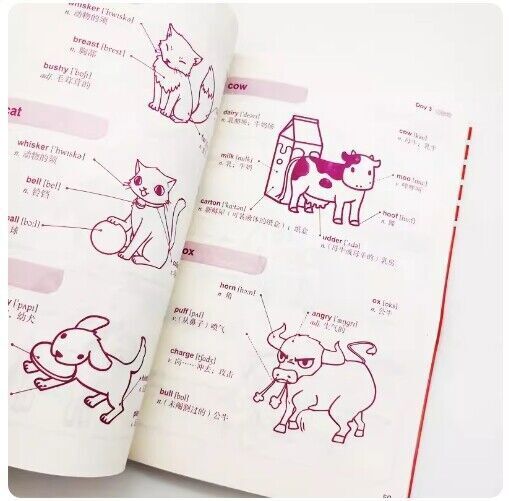 whisker ['hwɪskə]
n. 动物的须
breast [brest]
n. 胸部
bushy ['bʊʃi]
adj. 毛茸茸的
cat
whisker ['hwɪskə]
n. 动物的须
bell [bel]
n. 铃铛
ball [bɔːl]
球
[pʌpɪ]
幼犬
cow
Day 3
dairy ['deəri]
n. 乳制品；牛奶场
milk [mɪlk]
n. 乳；牛奶
carton ['kɑːtən]
n. 新鲜屋（可装液体的纸盒）；纸盒
cow [kaʊ]
n. 母牛；乳牛
moo [muː]
v. 哞哞叫
hoof [huːf]
n. 蹄
udder ['ʌdə]
n.（母牛或母羊的）乳房
ox
horn [hɔːn]
n. 角
puff [pʌf]
v.（从鼻子）喷气
charge [tʃɑːdʒ]
v. 向……冲去；攻击
bull [bʊl]
n.（未阉割过的）公牛
ox [ɒks]
n. 公牛
angry ['æŋgri]
adj. 生气的